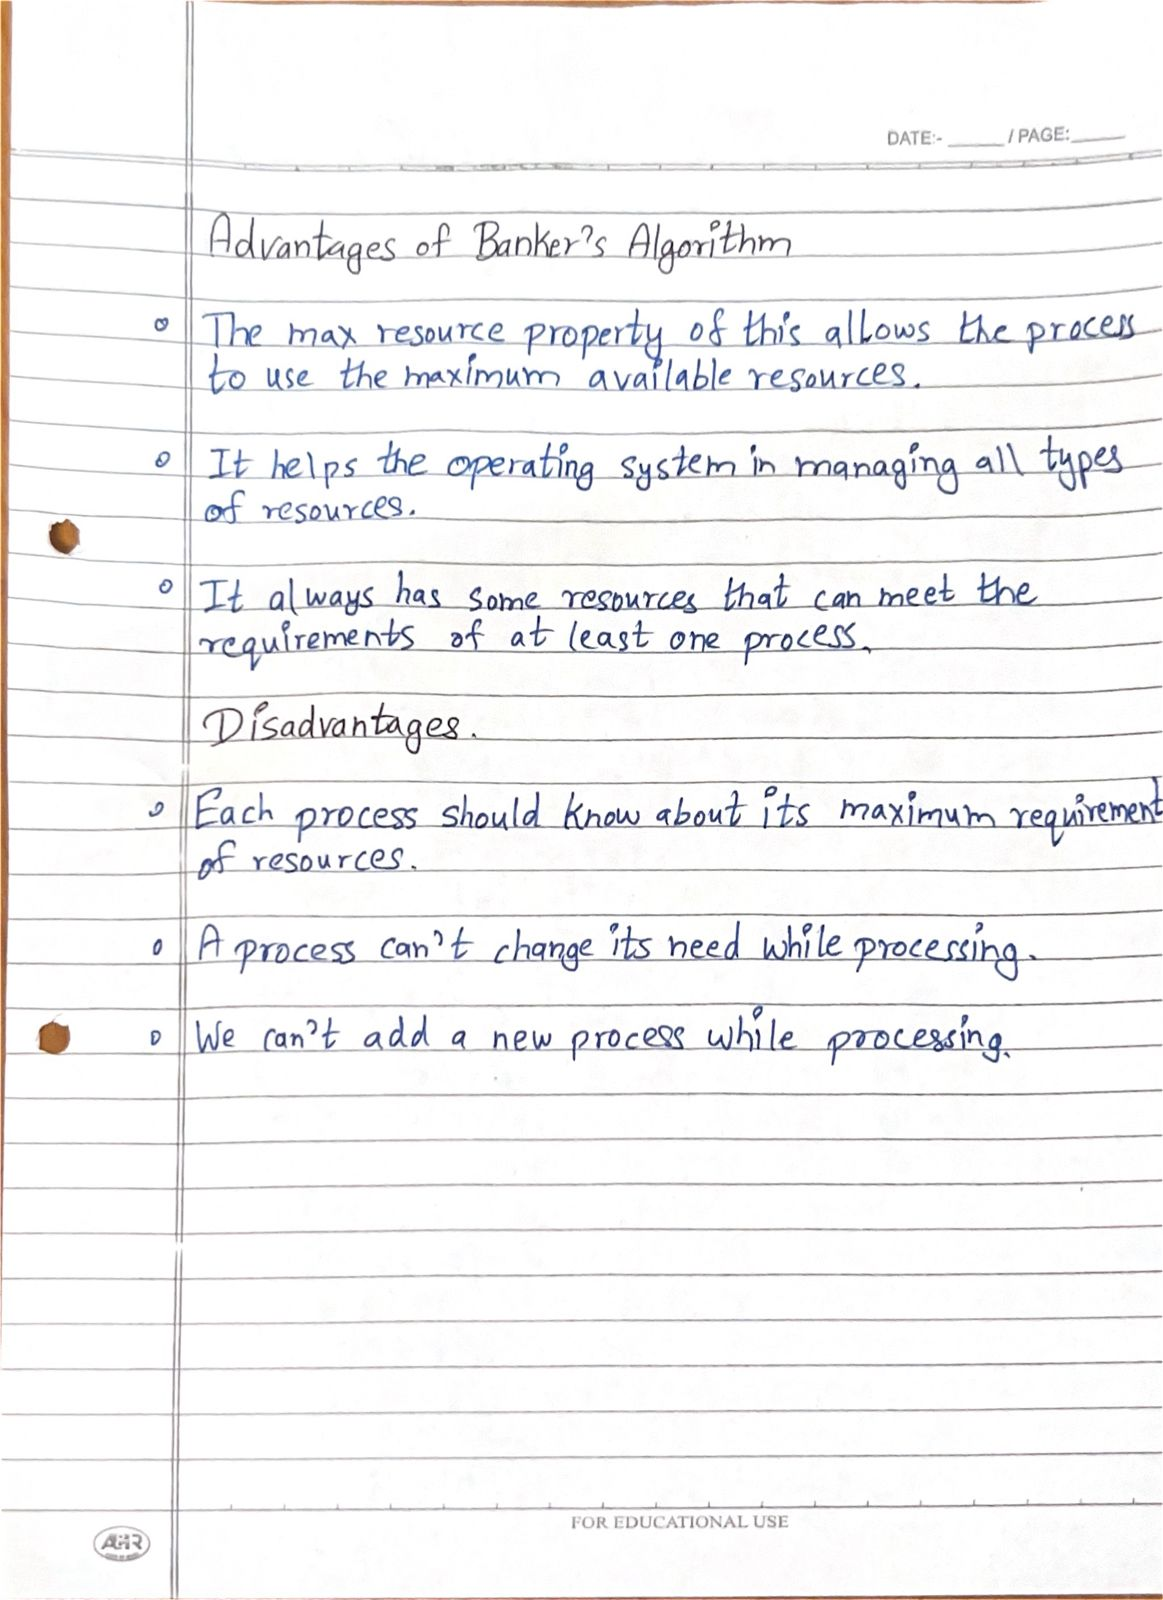 DATE:- _____ / PAGE: _____
Advantages of Banker's Algorithm
The max resource property of this allows the process
to use the maximum available resources.
It helps the operating system in managing all types
of resources.
It always has some resources that can meet the
requirements of at least one process.
Disadvantages.
Each process should know about its maximum requirement
of resources.
A process can't change its need while processing.
We can't add a new process while processing.
FOR EDUCATIONAL USE